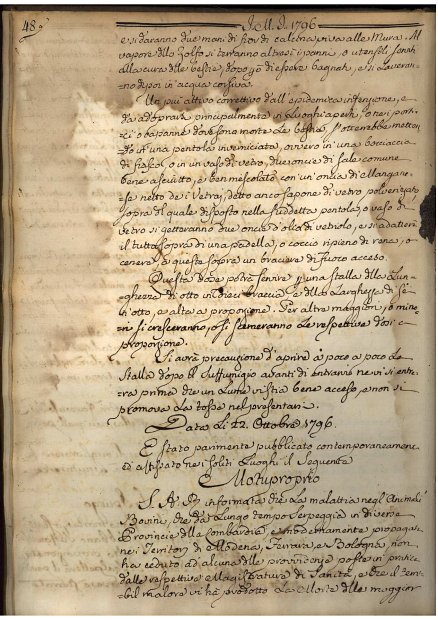 48.
J. M. J. 1796
e si daranno due mani di fior di calcina viva alle Mura. Al
vapore dello Zolfo si terranno altresì i panni, o utensili
alla cura delle bestie, dopo di essere bagnati, e si laveran-
no dipoi in acqua corsiva.
Un più attivo correttivo dall'epidemica infezzione, e
da adoprarsi principalmente in luoghi aperti, o nei porti-
ci o capanne dove sono morte le bestie. Potrebbe metter-
si in una pentola inverniciata, ovvero in una bocciaccia
di fiasco, o in un vaso di vetro, due oncie di sale comune
bene asciutto, e ben mescolato con un'oncia di Mangane-
se netto dei Vetraj, detto anco sapone di vetro polverizzato,
sopra il quale disposto nella suddetta pentola, o vaso di
vetro si getteranno due oncie d'olio di vetriolo, e si adatterà
il tutto sopra di una padella, o coccio ripieno di rena, o
cenere, e questo sopra un braciere di fuoco acceso.
Questa dose potrà servire per una stalla della Lun-
ghezza di otto in dieci braccia, e della Larghezza di sei
in otto, e alta a proporzione. Per altre maggiori, o mino-
ri si cresceranno, o si scemeranno le respettive dosi a
proporzione.
Si avrà precauzione d'aprire a poco a poco la
stalla dopo il suffumigio avanti di entrarvi ne vi si entre-
rà prima che un Lume vi stia bene acceso, e non si
promova la tosse nel presentarsi.
Data li 12. Ottobre 1796.
È stato parimente pubblicato contemporaneamente
ed affissato nei soliti Luoghi il seguente
Motuproprio
S. A. R. informata che la malattia negl'Animali
Bovini, che da lungo tempo serpeggia in diverse
Provincie della Lombardia, e modernamente propagata
nei Territorj di Modena, Ferrara, e Bologna, non
ha ceduto ad alcuna delle provvidenze poste in pratica
dalle respettive Magistrature di Sanità, e che il terri-
bil malore vi ha prodotto la Morte della maggior